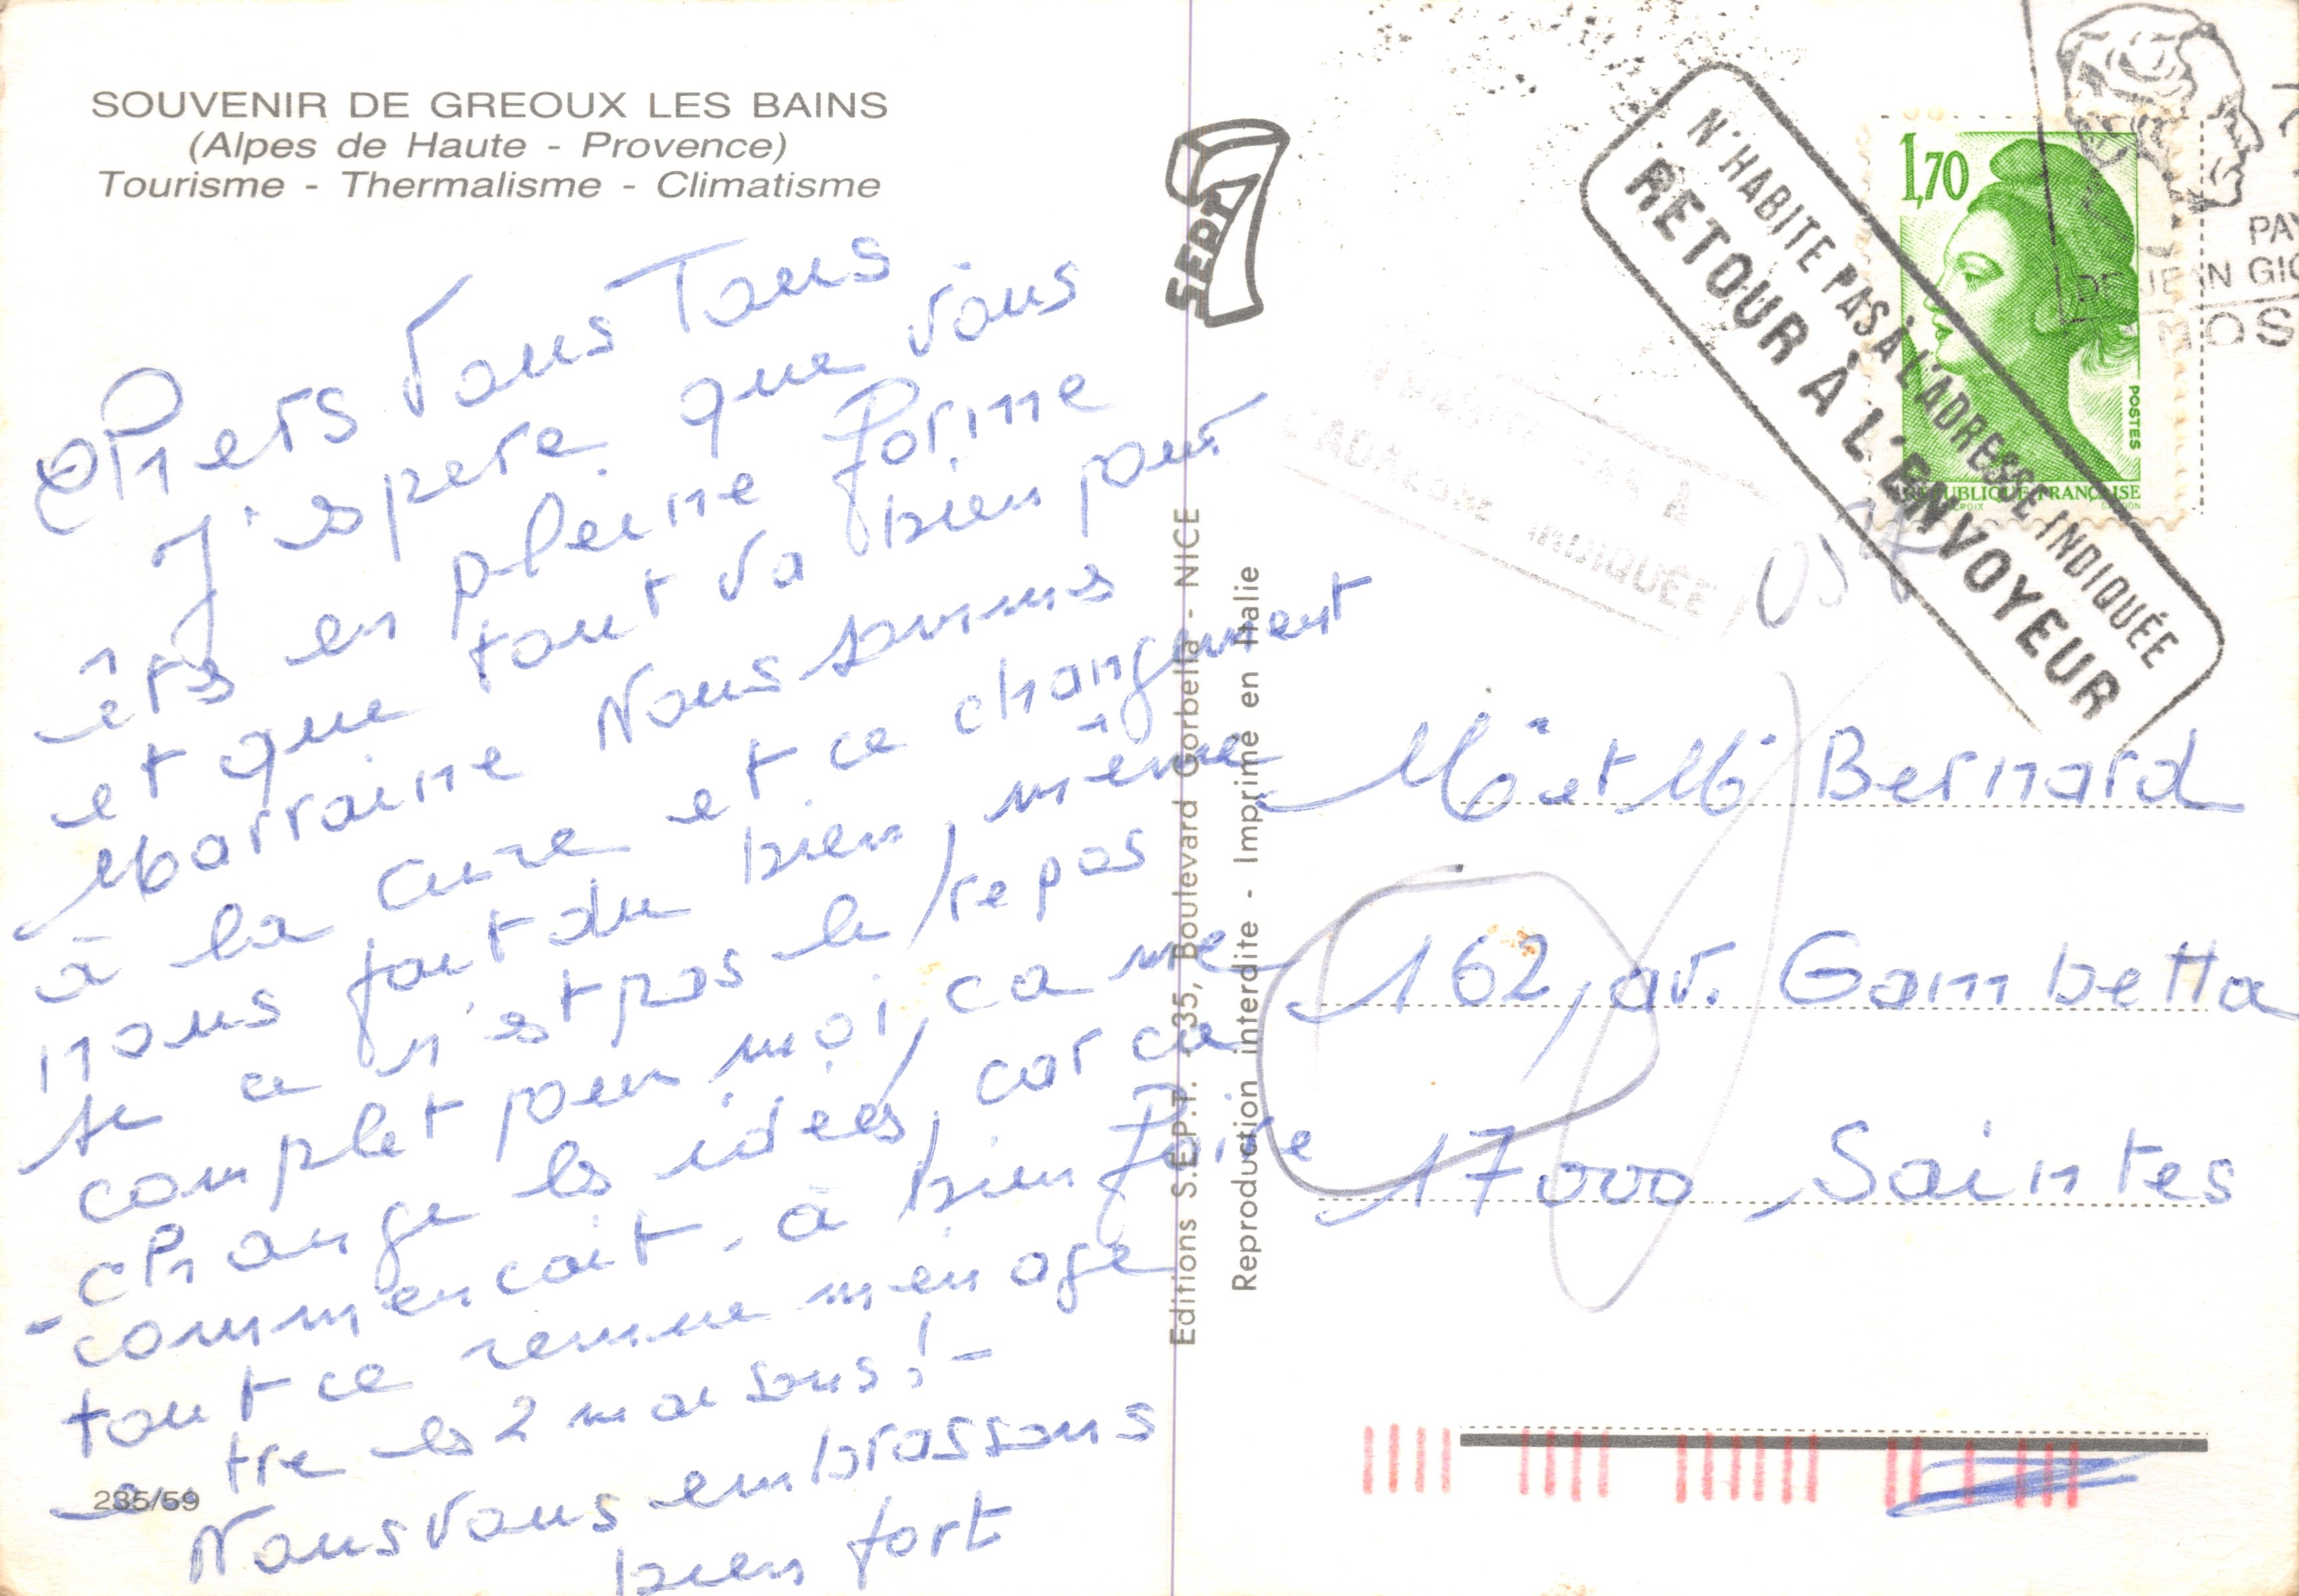 SOUVENIR DE GREOUX LES BAINS
(Alpes de Haute - Provence)
Tourisme - Thermalisme - Climatisme
Chers Vous Tous
J'espere que vous
êtes en pleine forme
et que tout va bien pour
Marraine Nous sommes
à la cure et ce changement
nous fait du bien, même
si ce n'est pas le repas
complet pour moi, ca me
change les idées, car ca
commencait à bien faire
tout ce remue menage
entre les 2 maisons! -
Nous vous embrassons
bien fort
235/59
SEPT
Editions S.EP.T. - 35, Boulevard Gorbella - NICE
Reproduction interdite - Imprimé en Italie
N'HABITE PAS À L'ADRESSE INDIQUÉE
RETOUR À L'ENVOYEUR
1,70
POSTES
REPUBLIQUE FRANÇAISE
PAY
DE JEAN GIO
MOS
PAS À
L'ADRESSE INDIQUÉE
Mr et Mr Bernard
162, av. Gambetta
17000 Saintes